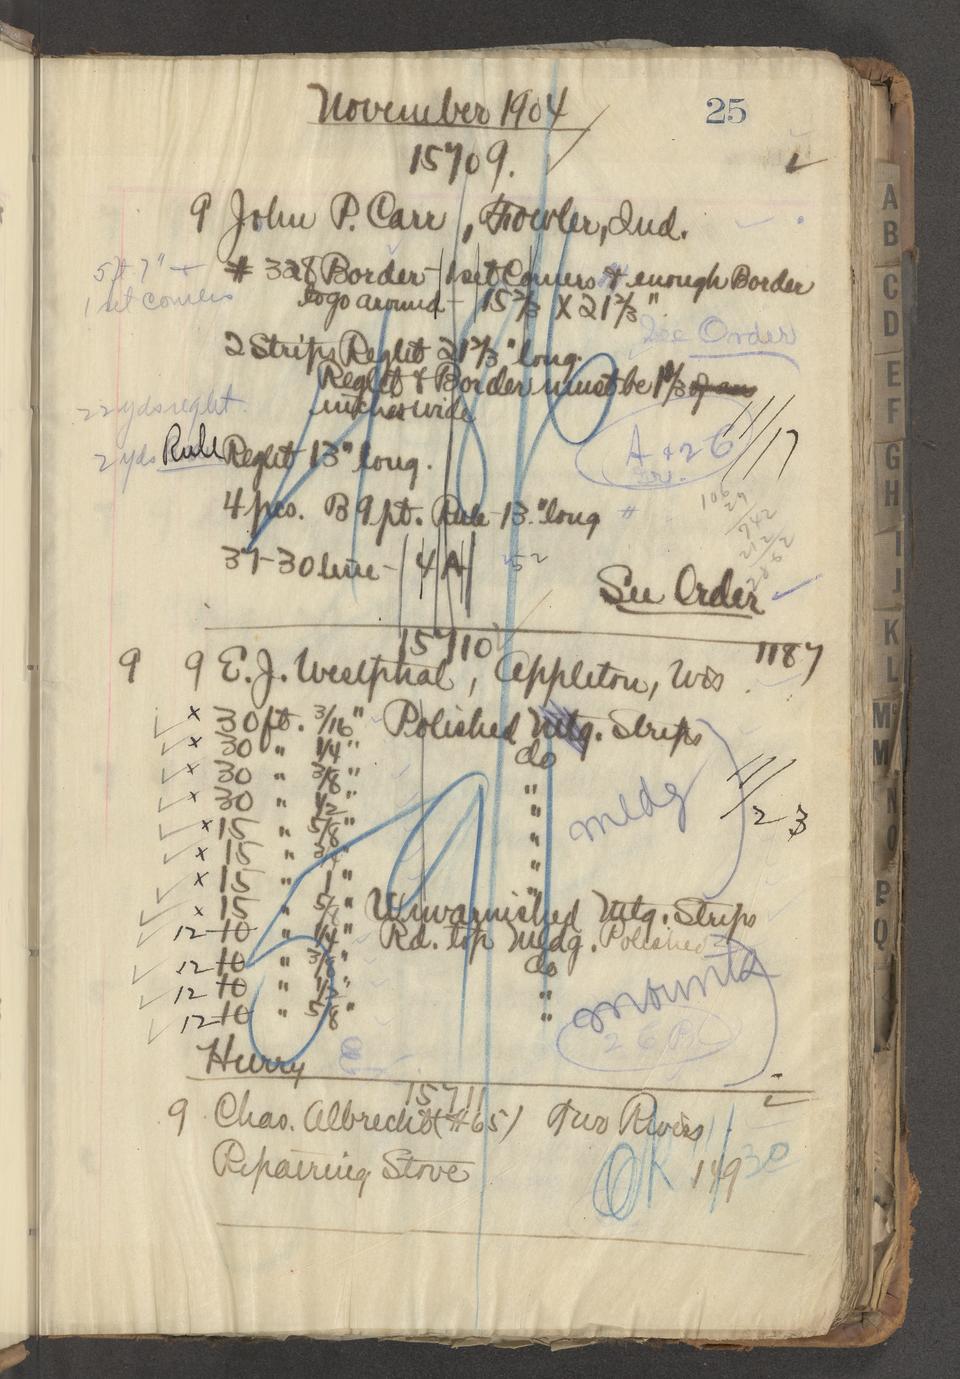 November 1904
25
15709.
9 John P. Carr, Fowler, Ind.
# 328 Border - 1 set Corners & enough Border
to go around - 15 2/3 X 21 2/3"
5 ft 7"
1 set corners
See Order
2 Strips Reglet 21 2/3" long.
Reglet & Border must be 1 1/3
inches wide
22 yds reglet.
11/17
A & 2 G
2 yds Rule Reglet 13" long.
4 pcs. B 9 pt. Rule - 13" long #
37 - 30 line - 4 A 52
See Order
15710
1187
9 9 E. J. Westphal, Appleton, Wis.
x 30 ft. 3/16" Polished Mtg. Strips
x 30 " 1/4" do
x 30 " 3/8" "
x 30 " 1/2" "
x 15 " 5/8" "
x 15 " 3/4" "
x 15 " 1" "
mldg
11/23
x 15 " 5/8" Unvarnished Mtg. Strips
12 10 " 1/4" Rd. top Mldg. Polished
12 10 " 3/8" do
12 10 " 1/2" "
12 10 " 5/8" "
mounta
Hurry
15711
9 Chas. Albrecht (#65) Two Rivers
Repairing Stove
OK 149 30
A
B
C
D
E
F
G
H
I
J
K
L
Mc
M
N
O
P
Q